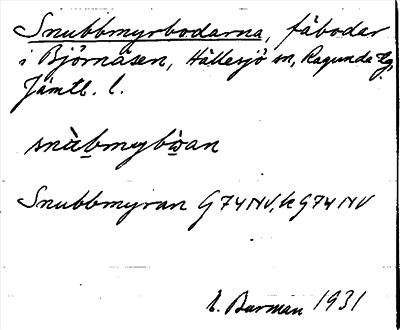 Snubbmyrbodarna, fäbodar
i Björnåsen, Hällesjö sn, Ragunda tg,
Jämtl. l.
snùbmybòan
Snubbmyran G74NV, k G74NV
E. Burman 1931